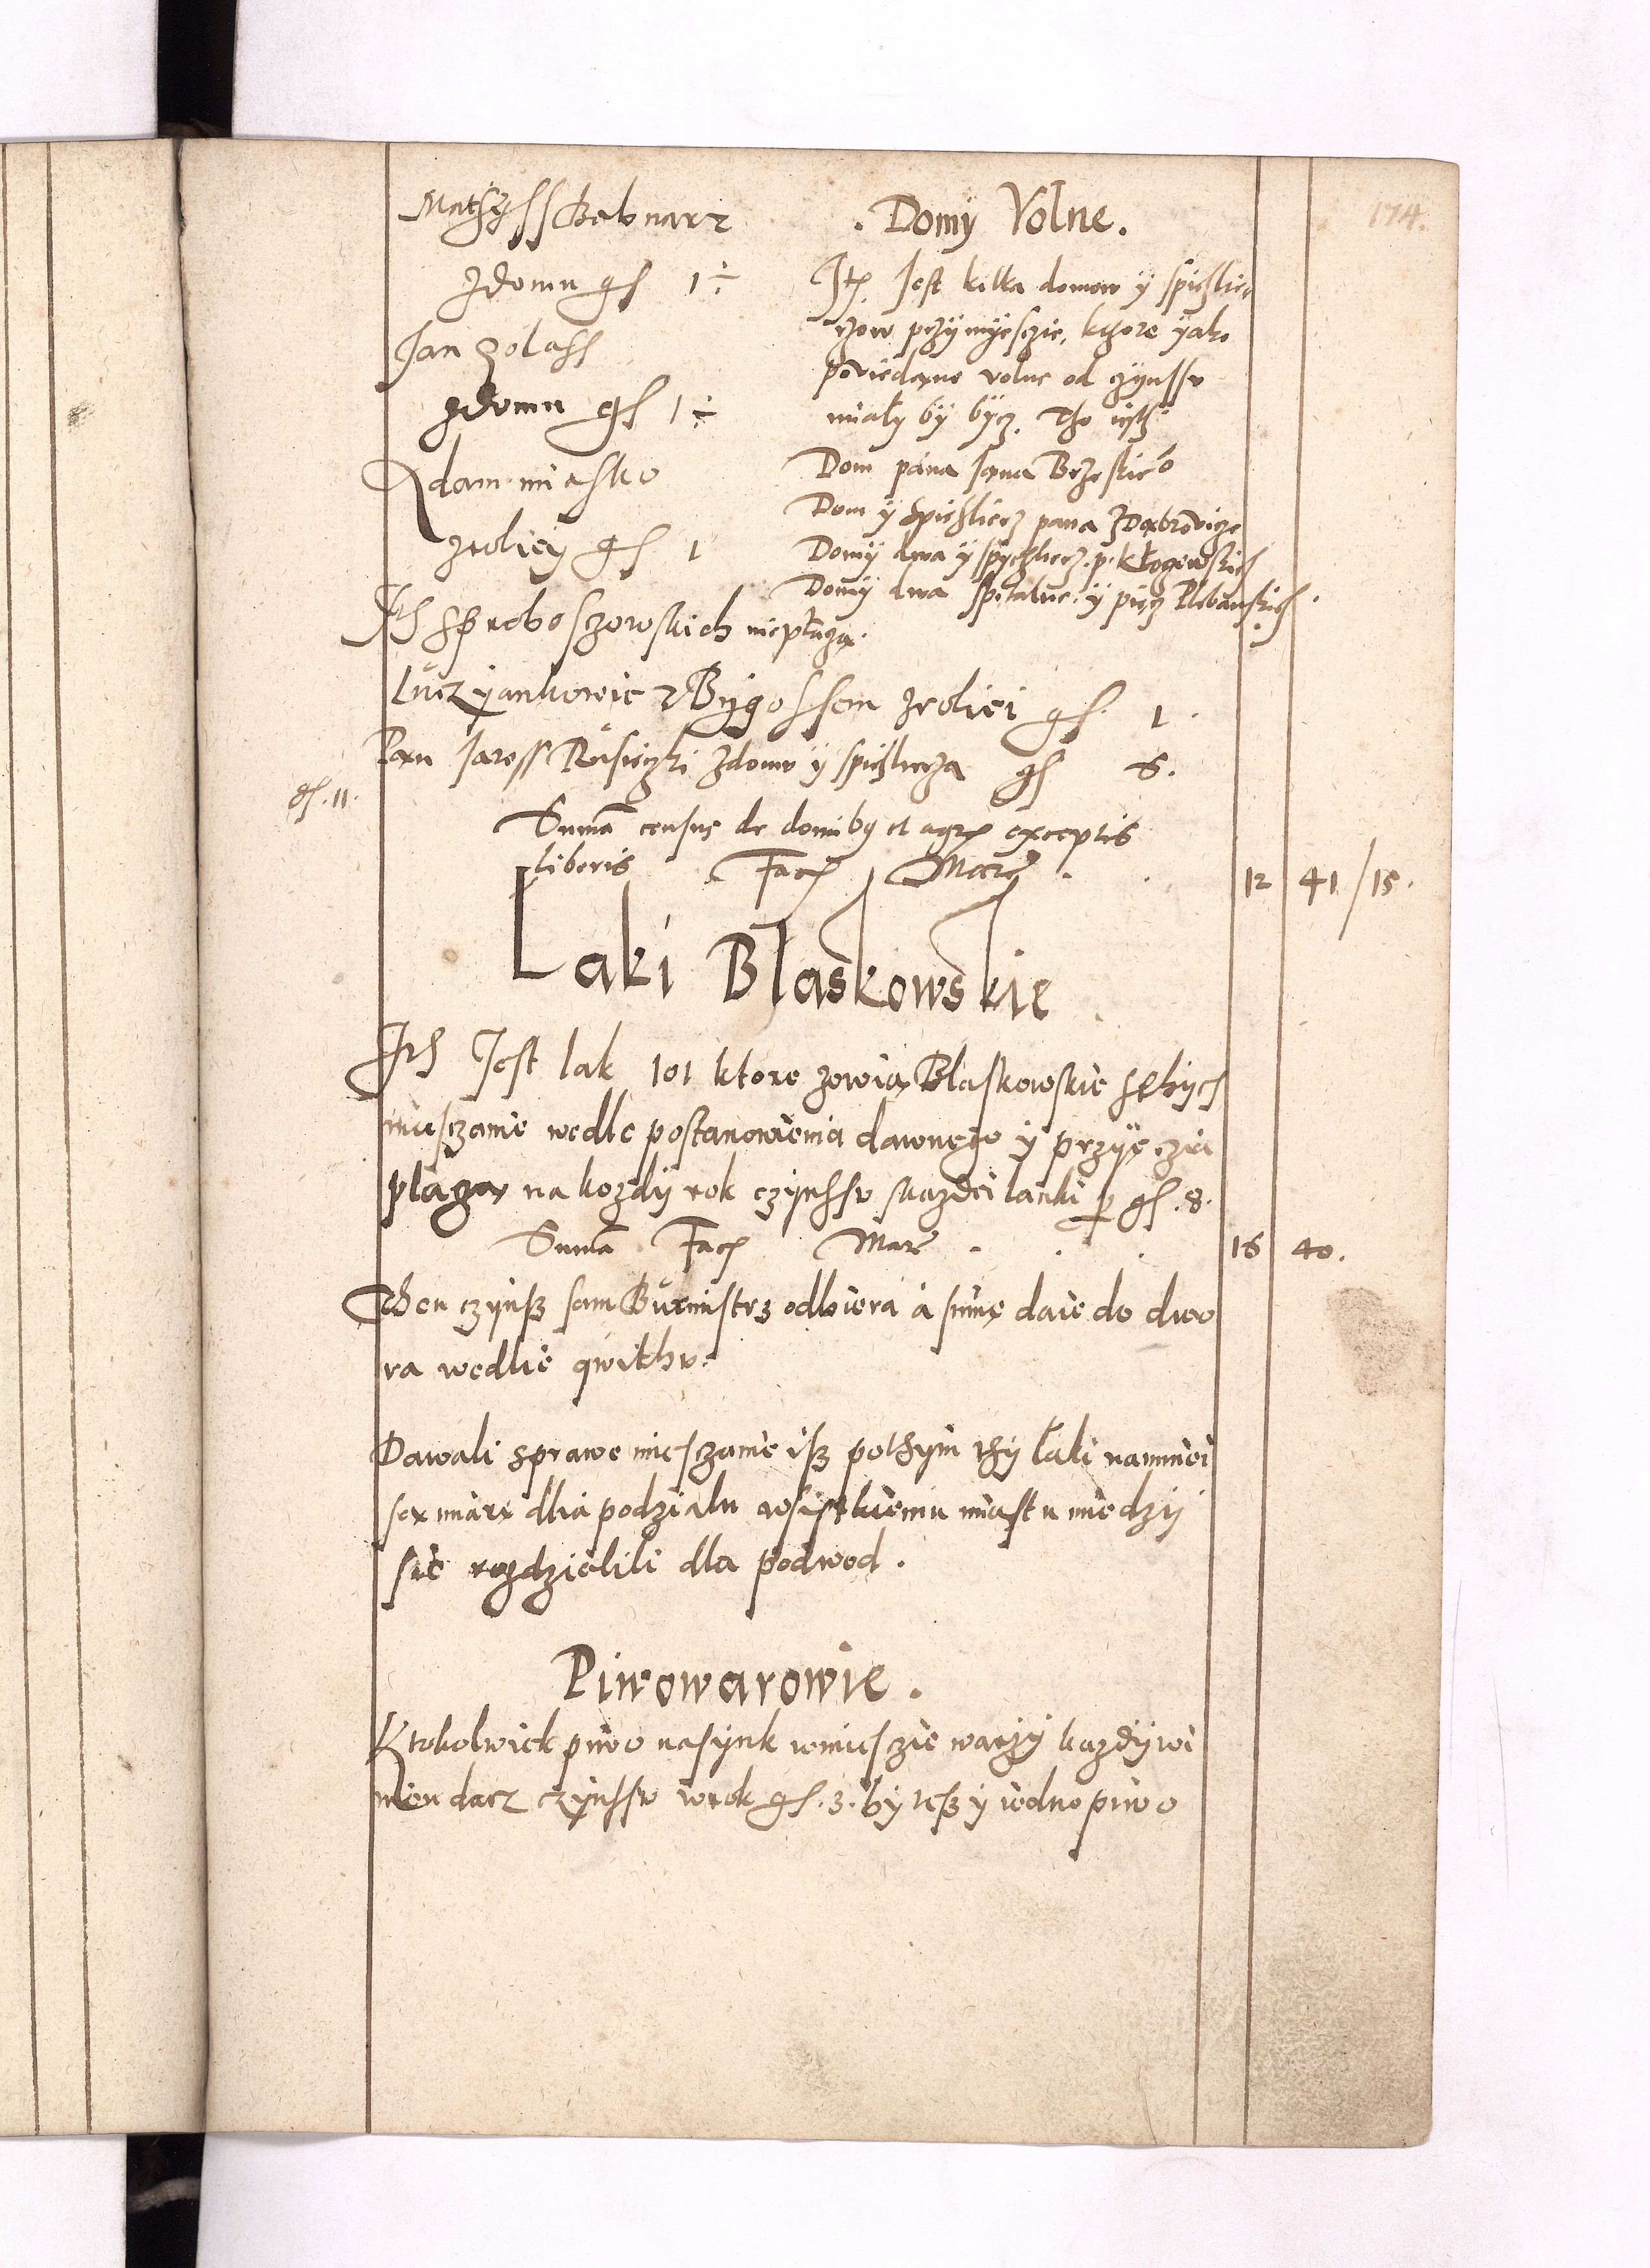 174.
Mathyss Bednarz
zdomu gs 1 ÷
Jan Zolass
zdomu gs 1 ÷
Adam miasko
zroliey gs 1
. Domy Volne .
Jtem Jest kilka domow y spichlie-
rzow przy myesczie, kthore yako
poviedano volne od czynssv
miały by bycz. Tho iesth
Dom pána Jana Brzeskie°
Dom y Spichlierz pana Dabrovicze
Domy dwa y spychlerz. p. Kłogewskich
Domy dwa spitalne. y piecz Plebanskich.
Jth Sproboszowskich nie płaczą.
Yankowic z Bygossem zroliei gs. 1.
Pan Jaross Rusieczki zdomv y spichlierza gs 6.
gs. 11.
Suma census de domibus et agris exceptis
liberis Facit Marc . . 12 41 / 15.
Laki Blaskowskie
Jth Jest lak 101 ktore zowia Blaskowskie stych
miesczanie wedle postanowienia dawnego y przyęczia
placzą na kozdy rok czynssv skazdei lanki per gs. 8.
Suma Facit Marc . . . 16 40.
Then czynsz sam Burmistrz odbiera á sumę daie do dwo
ra wedlie qwithv.
Dawali sprawe miesczanie isz pothym thy łaki namniei
sza miarą dlia podzialu wsistkiemu miastu miedzy
sie rozdzielili dla podwod .
Piwowarowie .
Ktokolwiek piwo nasynk wmiesczie warzy kazdy wi
nien dacz czynssv wrok gs. 3. by tesz y iedno piwo